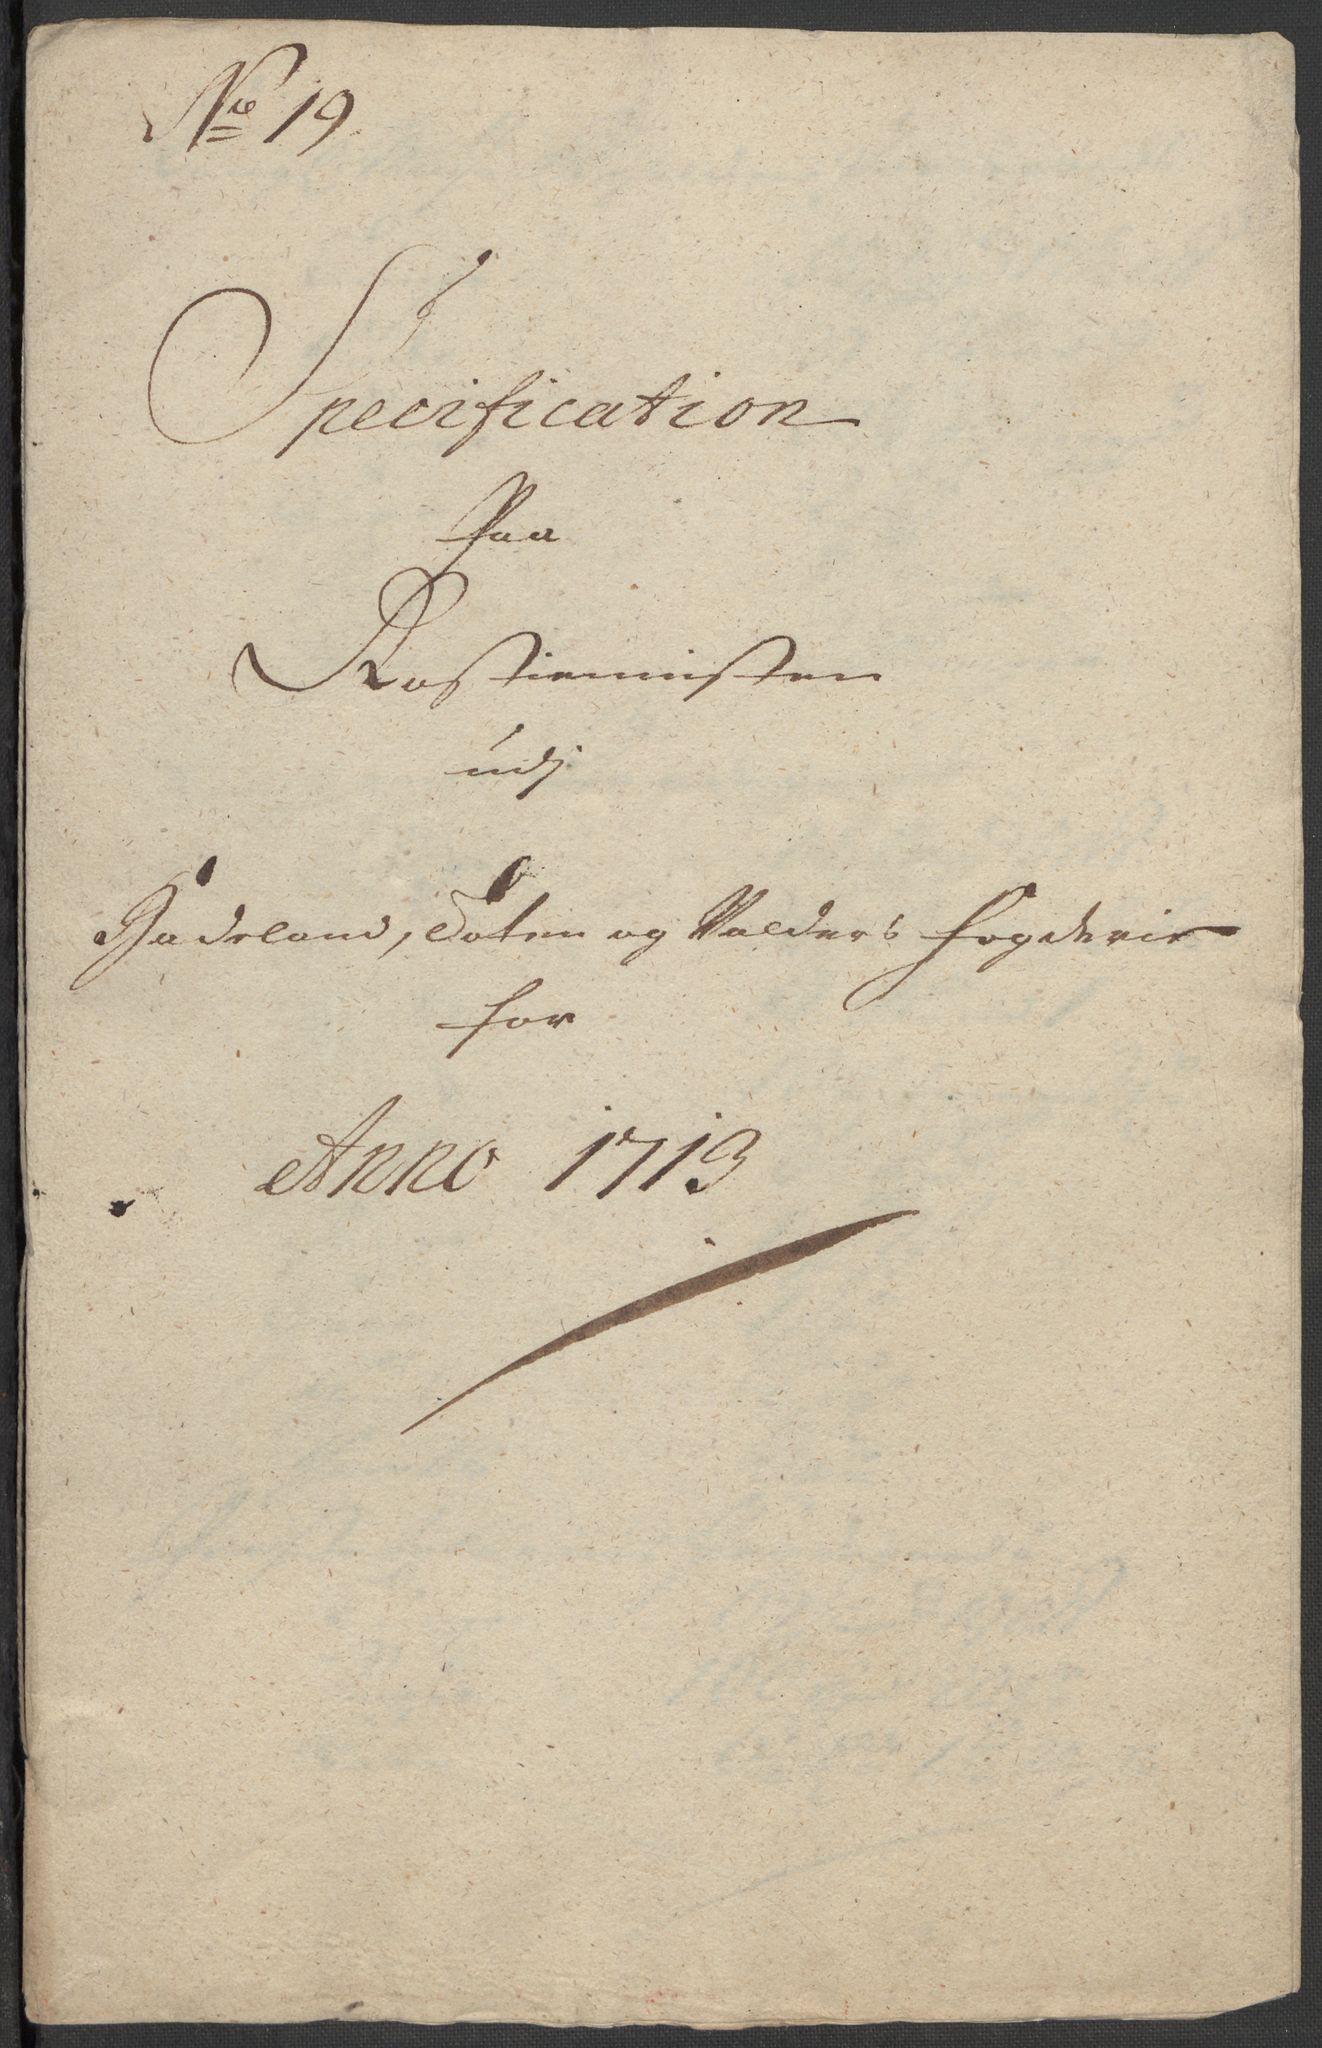 No 19
Specification
Paa
Rostiennisten
udj
Hadeland, Toten og Valders Fogderie
for
Anno 1713